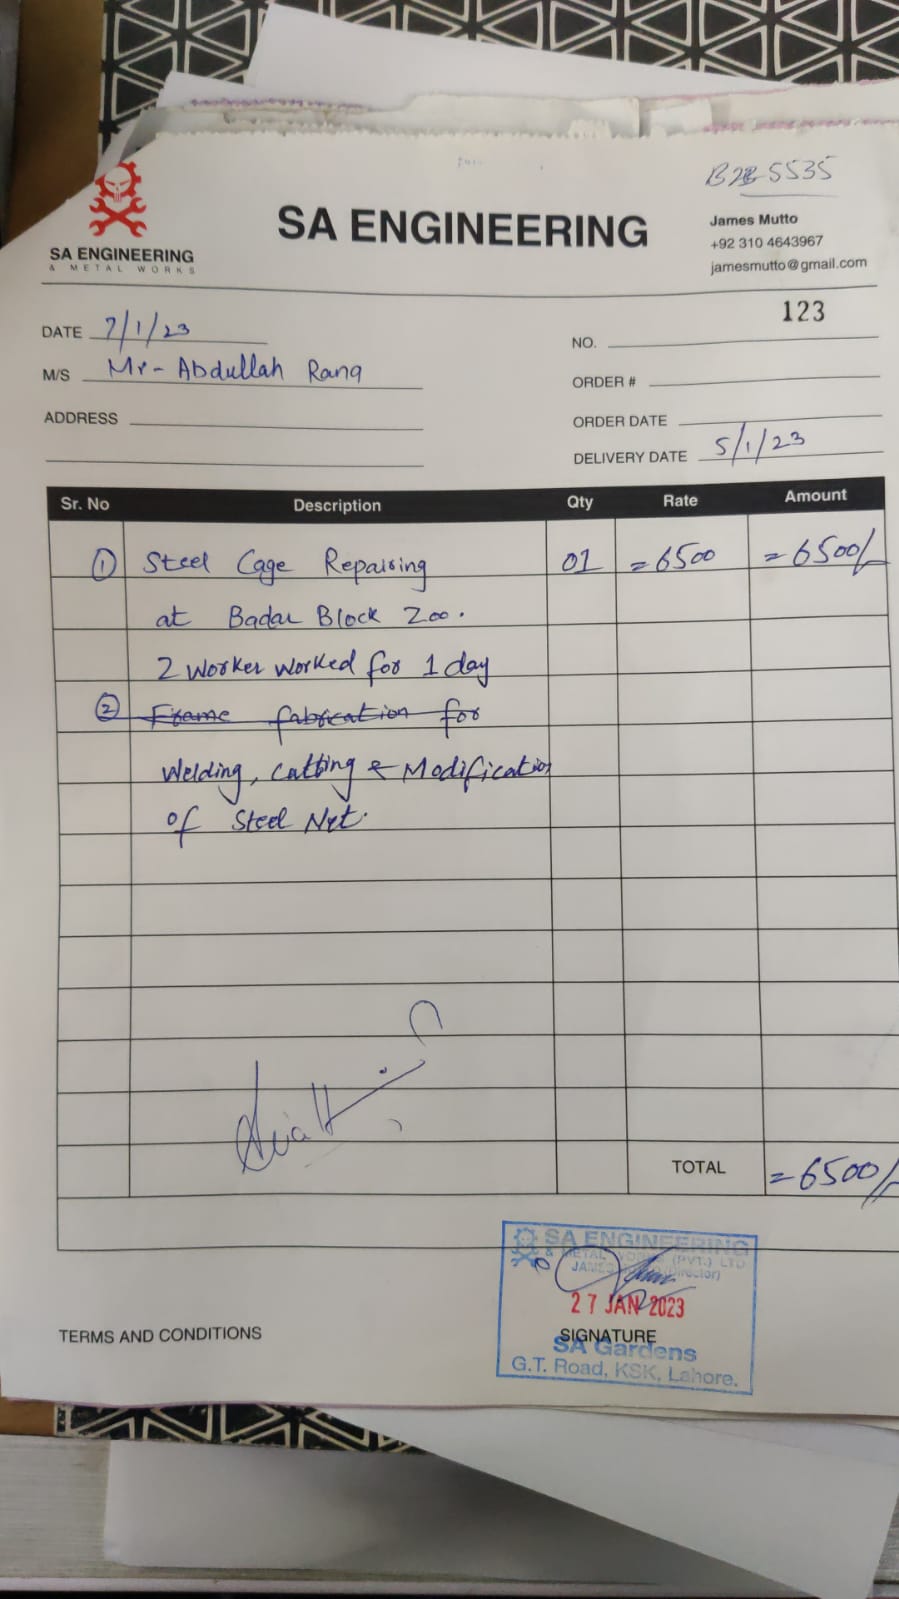 B2B-5535
SA ENGINEERING
& METAL WORKS
SA ENGINEERING
James Mutto
+92 310 4643967
jamesmutto@gmail.com
123
DATE 7/1/23
NO.
M/S Mr- Abdullah Rana
ORDER #
ADDRESS
ORDER DATE
DELIVERY DATE 5/1/23
Sr. No Description Qty Rate Amount
① Steel Cage Repairing 01 =6500 =6500/-
at Badar Block Zoo.
2 worker worked for 1 day
② Frame fabrication for
Welding, Cutting & Modification
of Steel Net.
TOTAL =6500/-
SA ENGINEERING
& METAL WORKS (PVT.) LTD
(Director)
27 JAN 2023
TERMS AND CONDITIONS
SIGNATURE
SA Gardens
G.T. Road, KSK, Lahore.